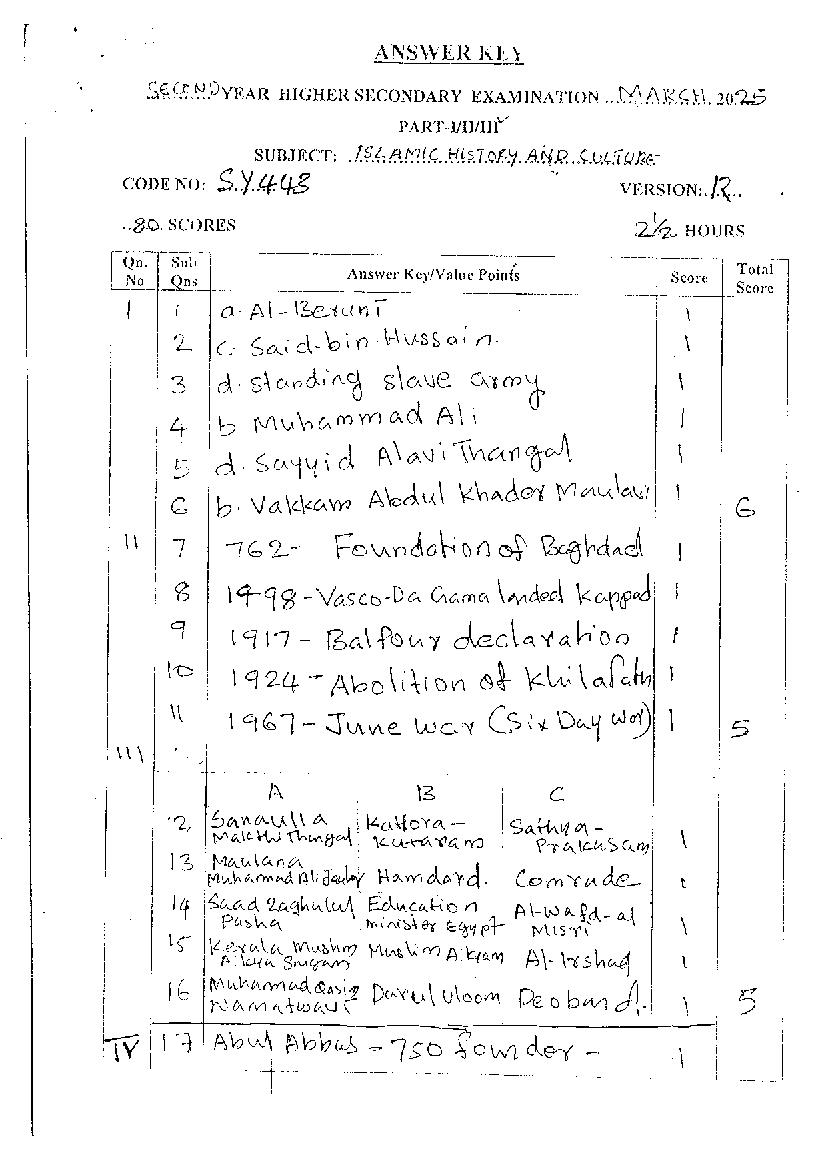 ANSWER KEY
SECOND YEAR HIGHER SECONDARY EXAMINATION ..MARCH. 2025
PART-I/II/III
SUBJECT: ISLAMIC HISTORY AND CULTURE
CODE NO: S.Y.443 VERSION:
..80. SCORES 2½ HOURS
Qn. No Sub Qns Answer Key/Value Points Score Total Score
I 1 a. Al-Beruni 1
2 c. Said-bin Hussain. 1
3 d. standing slave army 1
4 b Muhammad Ali 1
5 d. Sayyid Alavi Thangal 1
6 b. Vakkam Abdul Khader Maulavi 1 6
II 7 762- Foundation of Baghdad 1
8 1498-Vasco-Da Gama landed Kappad 1
9 1917- Balfour declaration 1
10 1924 - Abolition of Khilafath 1
11 1967- June war (Six Day War) 1 5
III
A B C
12 Sanaulla Makthi Thangal Kattora-Kutaram Sathya-Prakasam 1
13 Maulana Muhammad Ali Jauhar Hamdard. Comrade 1
14 Saad Zaghulul Pasha Education minister Egypt Al-Wafd-al Misri 1
15 Kerala Muslim Aikya Sangam Muslim Aikyam Al-Irshad 1
16 Muhammad Qasim Nanatwavi Darul uloom Deoband. 1 5
IV 17 Abul Abbas - 750 founder - 1